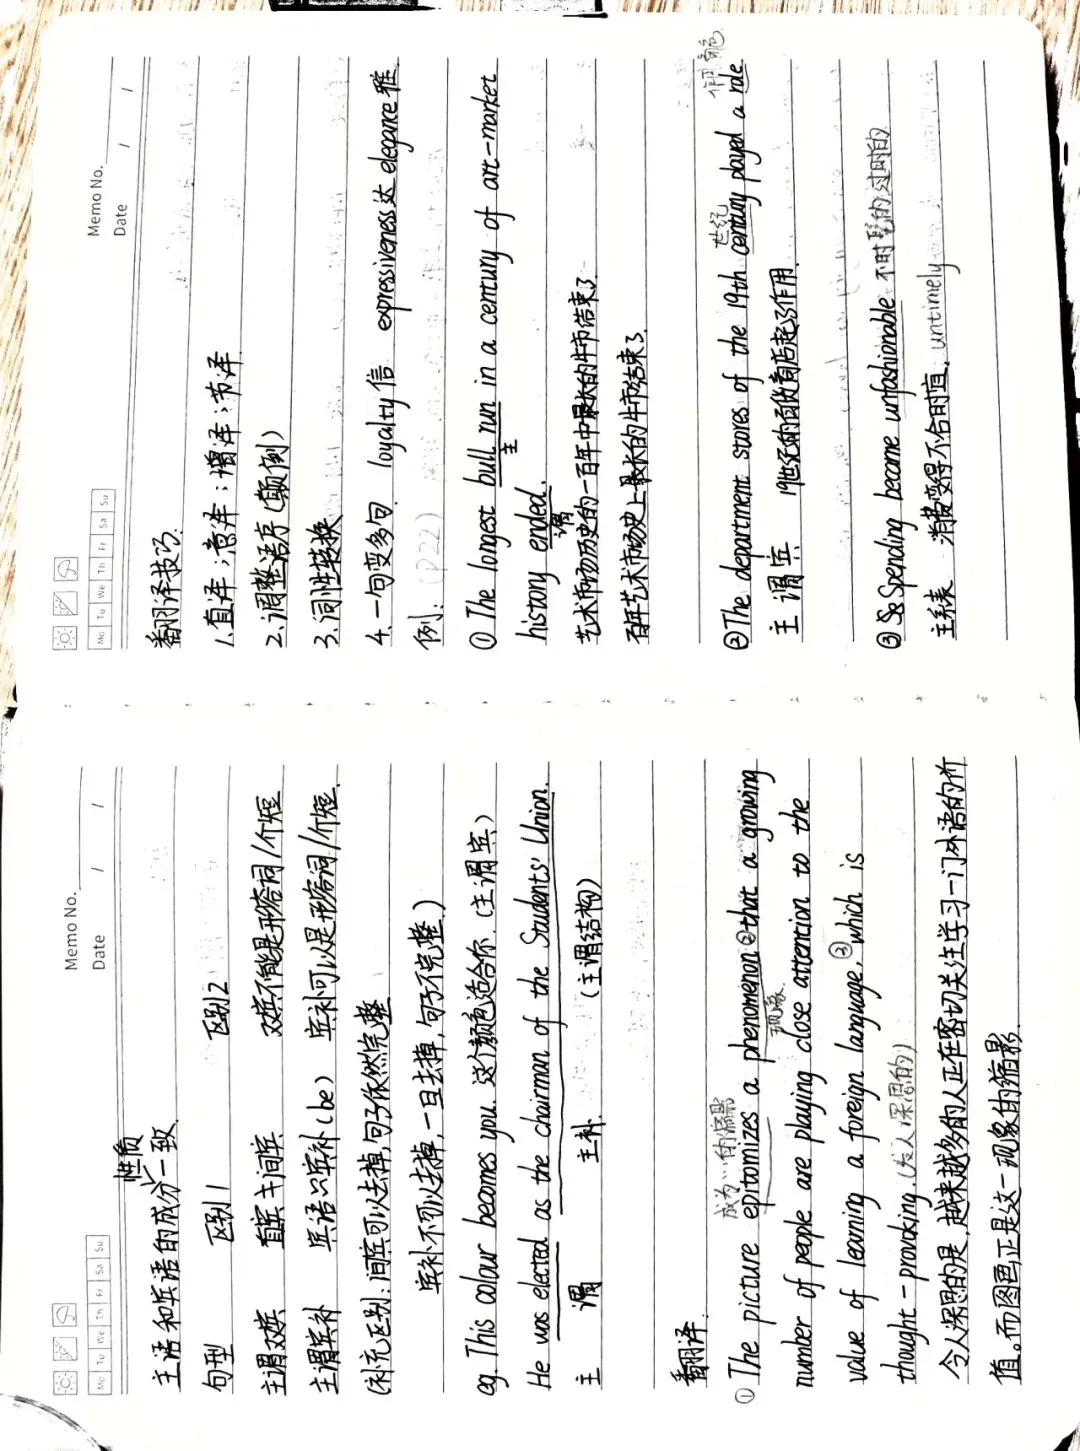 Memo No.
Date / /
Mo Tu We Th Fr Sa Su
性质
主语和宾语的成分一致.
句型 区别1 区别2
主谓双宾 直宾≠间宾 双宾不能是形容词/介短
主谓宾补 宾语⇔宾补(be) 宾补可以是形容词/介短.
(补充区别:间宾可以去掉,句子依然完整
宾补不可以去掉,一旦去掉,句子不完整.)
eg. This colour becomes you. 这个颜色适合你.(主谓宾)
He was elected as the chairman of the Students' Union.
主 谓 主补. (主谓结构)
翻译.
成为…的缩影
① The picture epitomizes a phenomenon ②that a growing
现象.
number of people are playing close attention to the
value of learning a foreign language,③which is
thought-provoking.(发人深思的)
令人深思的是,越来越多的人正在密切关注学习一门外语的价
值。而图画正是这一现象的缩影.
Memo No.
Date / /
Mo Tu We Th Fr Sa Su
翻译技巧.
1.直译;意译;增译;节译
2.调整语序(颠倒)
3.词性转换
4.一句变多句. loyalty信 expressiveness达 elegance雅
例: (P22)
① The longest bull run in a century of art-market
主
history ended.
谓
艺术市场历史的一百年中最长的牛市结束了.
百年艺术市场史上最长的牛市结束了.
世纪
②The department stores of the 19th century played a role
主 谓 宾 19世纪的百货商店起了作用.
③ Spending became unfashionable 不时髦的 过时的
主系表 消费变得不合时宜. untimely